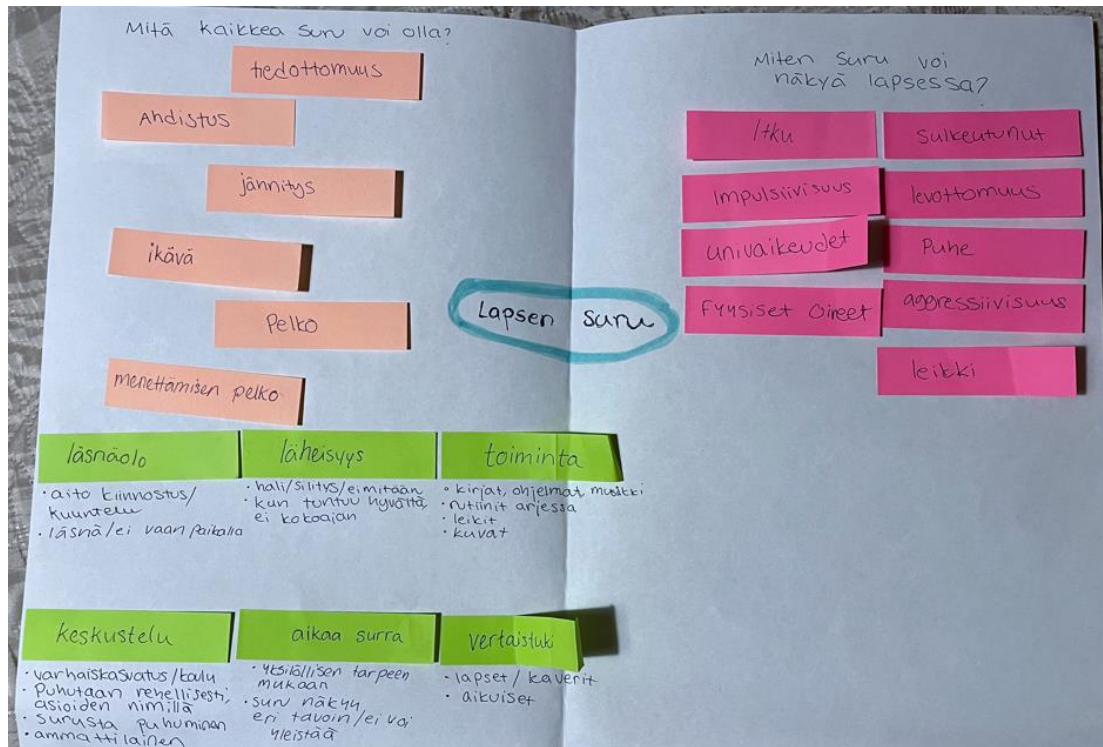 Mitä kaikkea suru voi olla?
tiedottomuus
Ahdistus
jännitys
ikävä
Pelko
menettämisen pelko
Lapsen suru
Miten suru voi
näkyä lapsessa?
Itku
Sulkeutunut
Impulsiivisuus
levottomuus
univaikeudet
Puhe
Fyysiset oireet
aggressiivisuus
leikki
läsnäolo
• aito kiinnostus/
kuuntelu
• läsnä/ei vaan paikalla
läheisyys
• hali/silitys/ei mitään
• kun tuntuu hyvältä,
ei kokoajan
toiminta
• kirjat, ohjelmat, musiikki
• rutiinit arjessa
• leikit
• kuvat
keskustelu
• varhaiskasvatus/koulu
• Puhutaan rehellisesti,
asioiden nimillä
• surusta puhuminen
• ammattilainen
aikaa surra
• yksilöllisen tarpeen
mukaan
• suru näkyy
eri tavoin/ei voi
yleistää
vertaistuki
• lapset/kaverit
• aikuiset